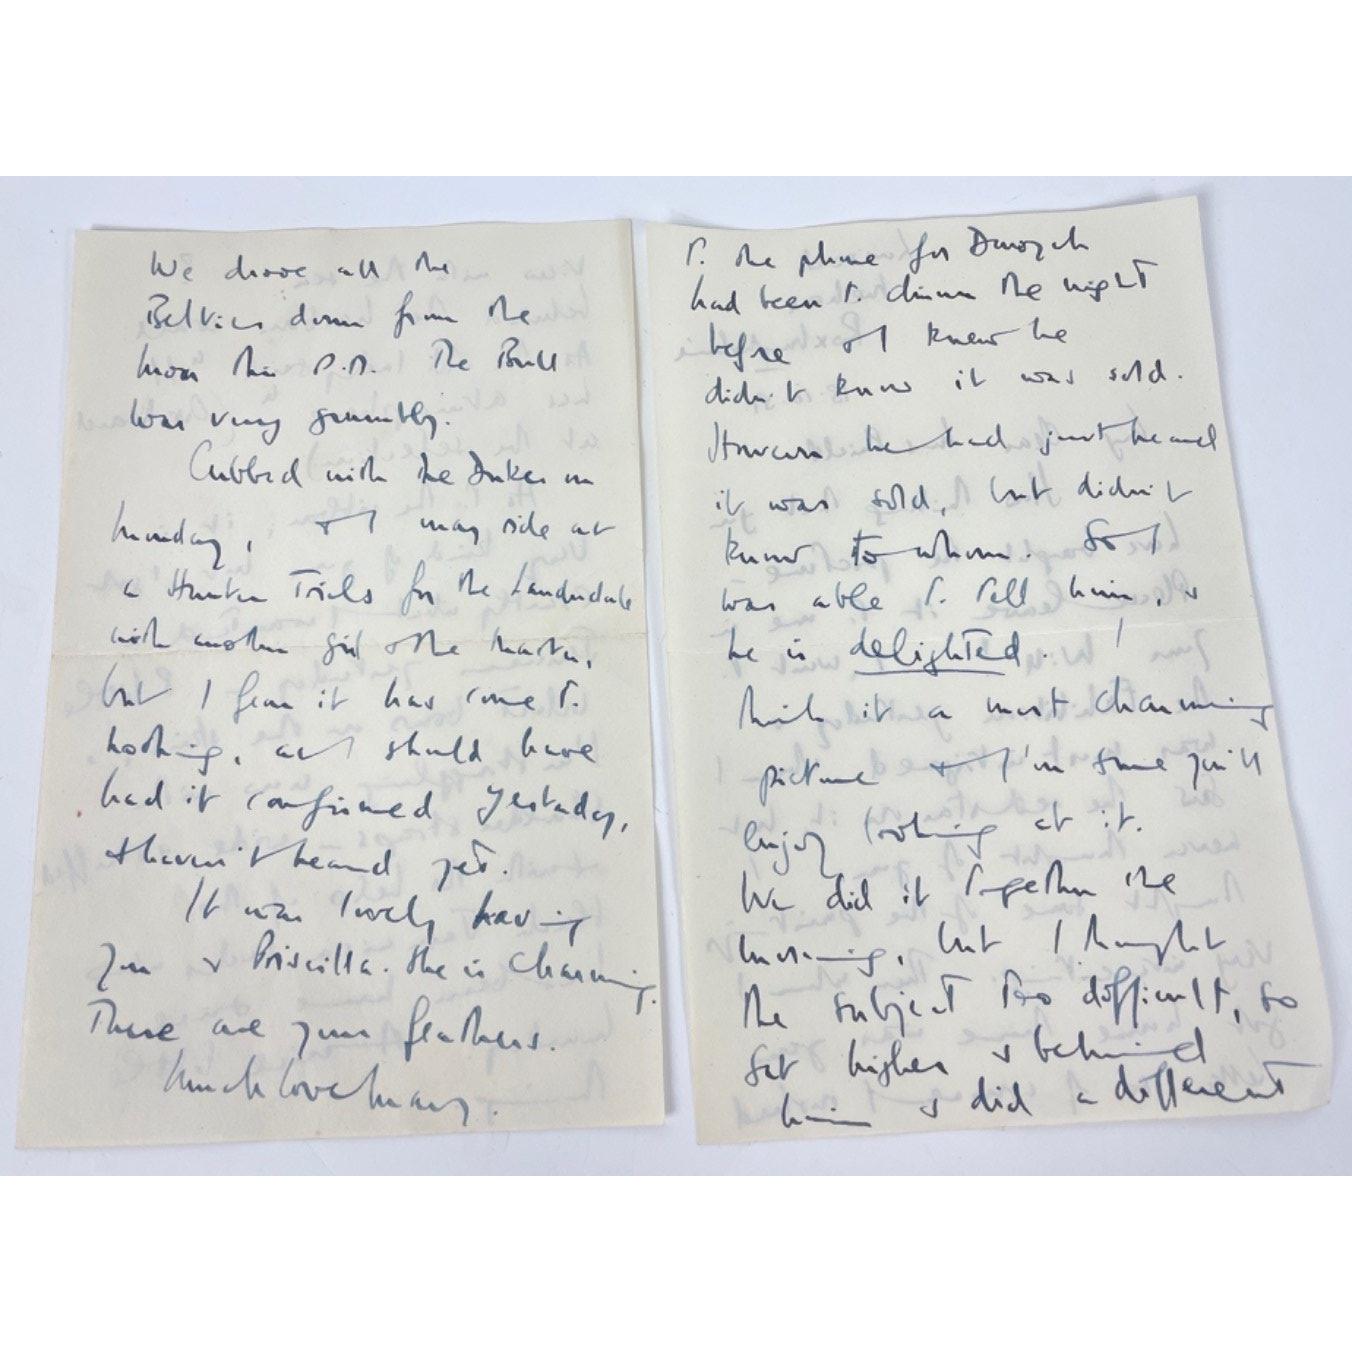 We drove all the
Belties down from the
moor this P.M. The Bull
was very grumbly.
Cubbed with the Dukes on
Monday, & I may ride at
a Hunter Trials for the Lauderdale
with another girl & the Master,
but I fear it has come to
nothing, as I should have
had it confirmed yesterday,
& haven't heard yet.
It was lovely having
you & Priscilla. She is charming.
These are your feathers.
Much love Mary.
to the phone for
had been to dinner the night
before & I knew he
didn't know it was sold.
However he had just heard
it was sold, but didn't
know to whom. So I
was able to tell him, &
he is delighted. I
think it a most charming
picture & I'm sure you'll
enjoy looking at it.
We did it together the
morning, but I thought
the subject too difficult, so
sat higher & behind
him & did a different